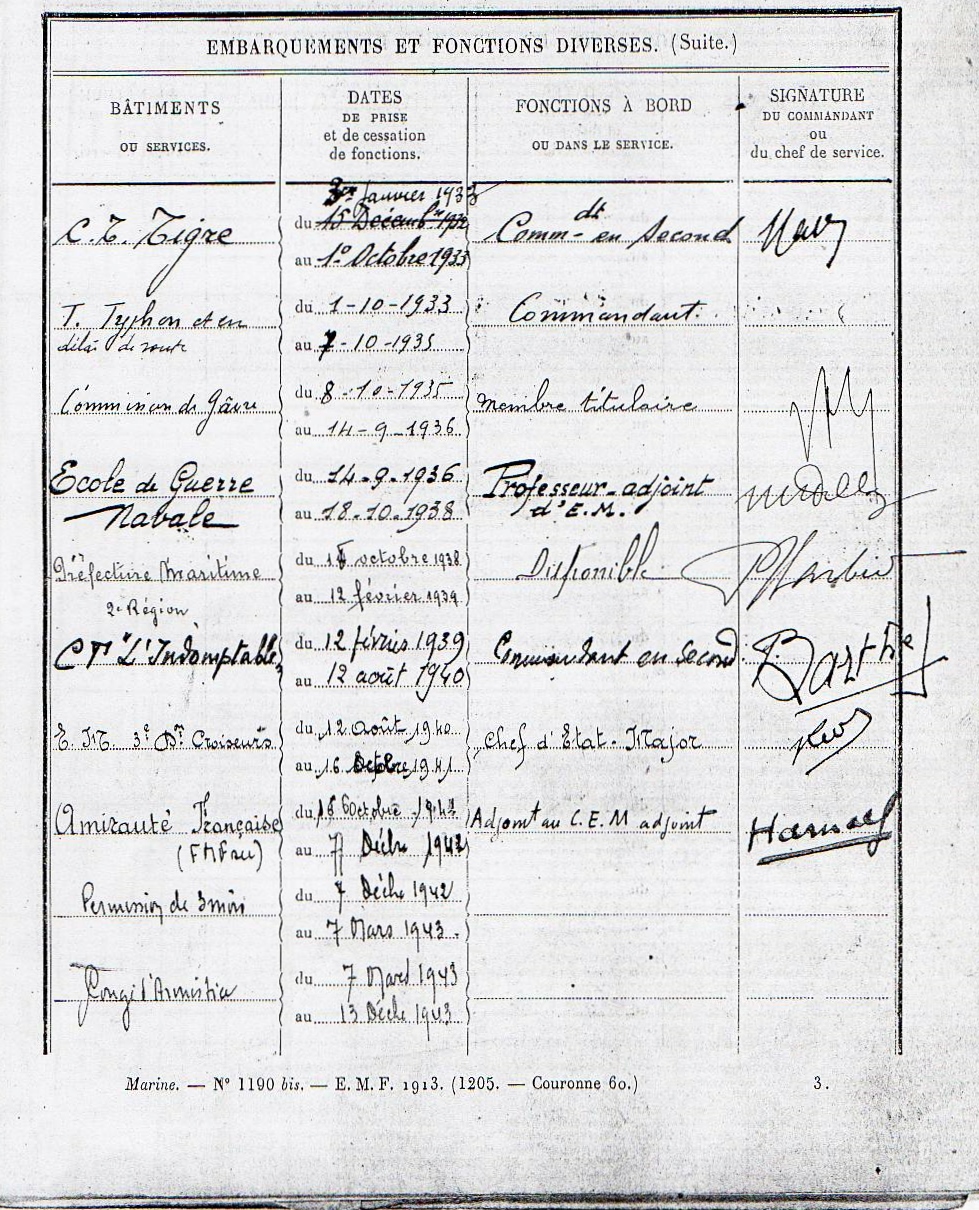 EMBARQUEMENTS ET FONCTIONS DIVERSES. (Suite.)
BÂTIMENTS
OU SERVICES.
DATES
DE PRISE
et de cessation
de fonctions.
FONCTIONS À BORD
OU DANS LE SERVICE.
SIGNATURE
DU COMMANDANT
ou
du chef de service.
C. T. Tigre
Janvier 1933
du 15 Décembre 1932
au 1° Octobre 1933
Comm-dt en Second
T. Typhon et en
délai de route
du 1-10-1933
au 7-10-1935
Commandant.
Commission de Gâvre
du 8-10-1935
au 14-9-1936
Membre titulaire
Ecole de Guerre
Navale
du 14-9-1936
au 18-10-1938
Professeur-adjoint
d'E.M.
Préfecture Maritime
2e Région
du octobre 1938
au 12 février 1939
Disponible
CT "L'Indomptable"
du 12 février 1939
au 12 août 1940
Commandant en Second
Barthe
E. M. 3e Don Croiseurs
du 12 Août 1940
au 16 Octobre 1941
Chef d'Etat-Major
Amirauté Française
du 16 Octobre
au 7 Décbre 1942
Adjoint au C.E.M adjoint
Permission de 3 mois
du 7 Décbre 1942
au 7 Mars 1943.
Congé d'Armistice
du 7 Mars 1943
au 13 Décbre 1943
Marine. — N° 1190 bis. — E. M. F. 1913. (1205. — Couronne 60.)
3.